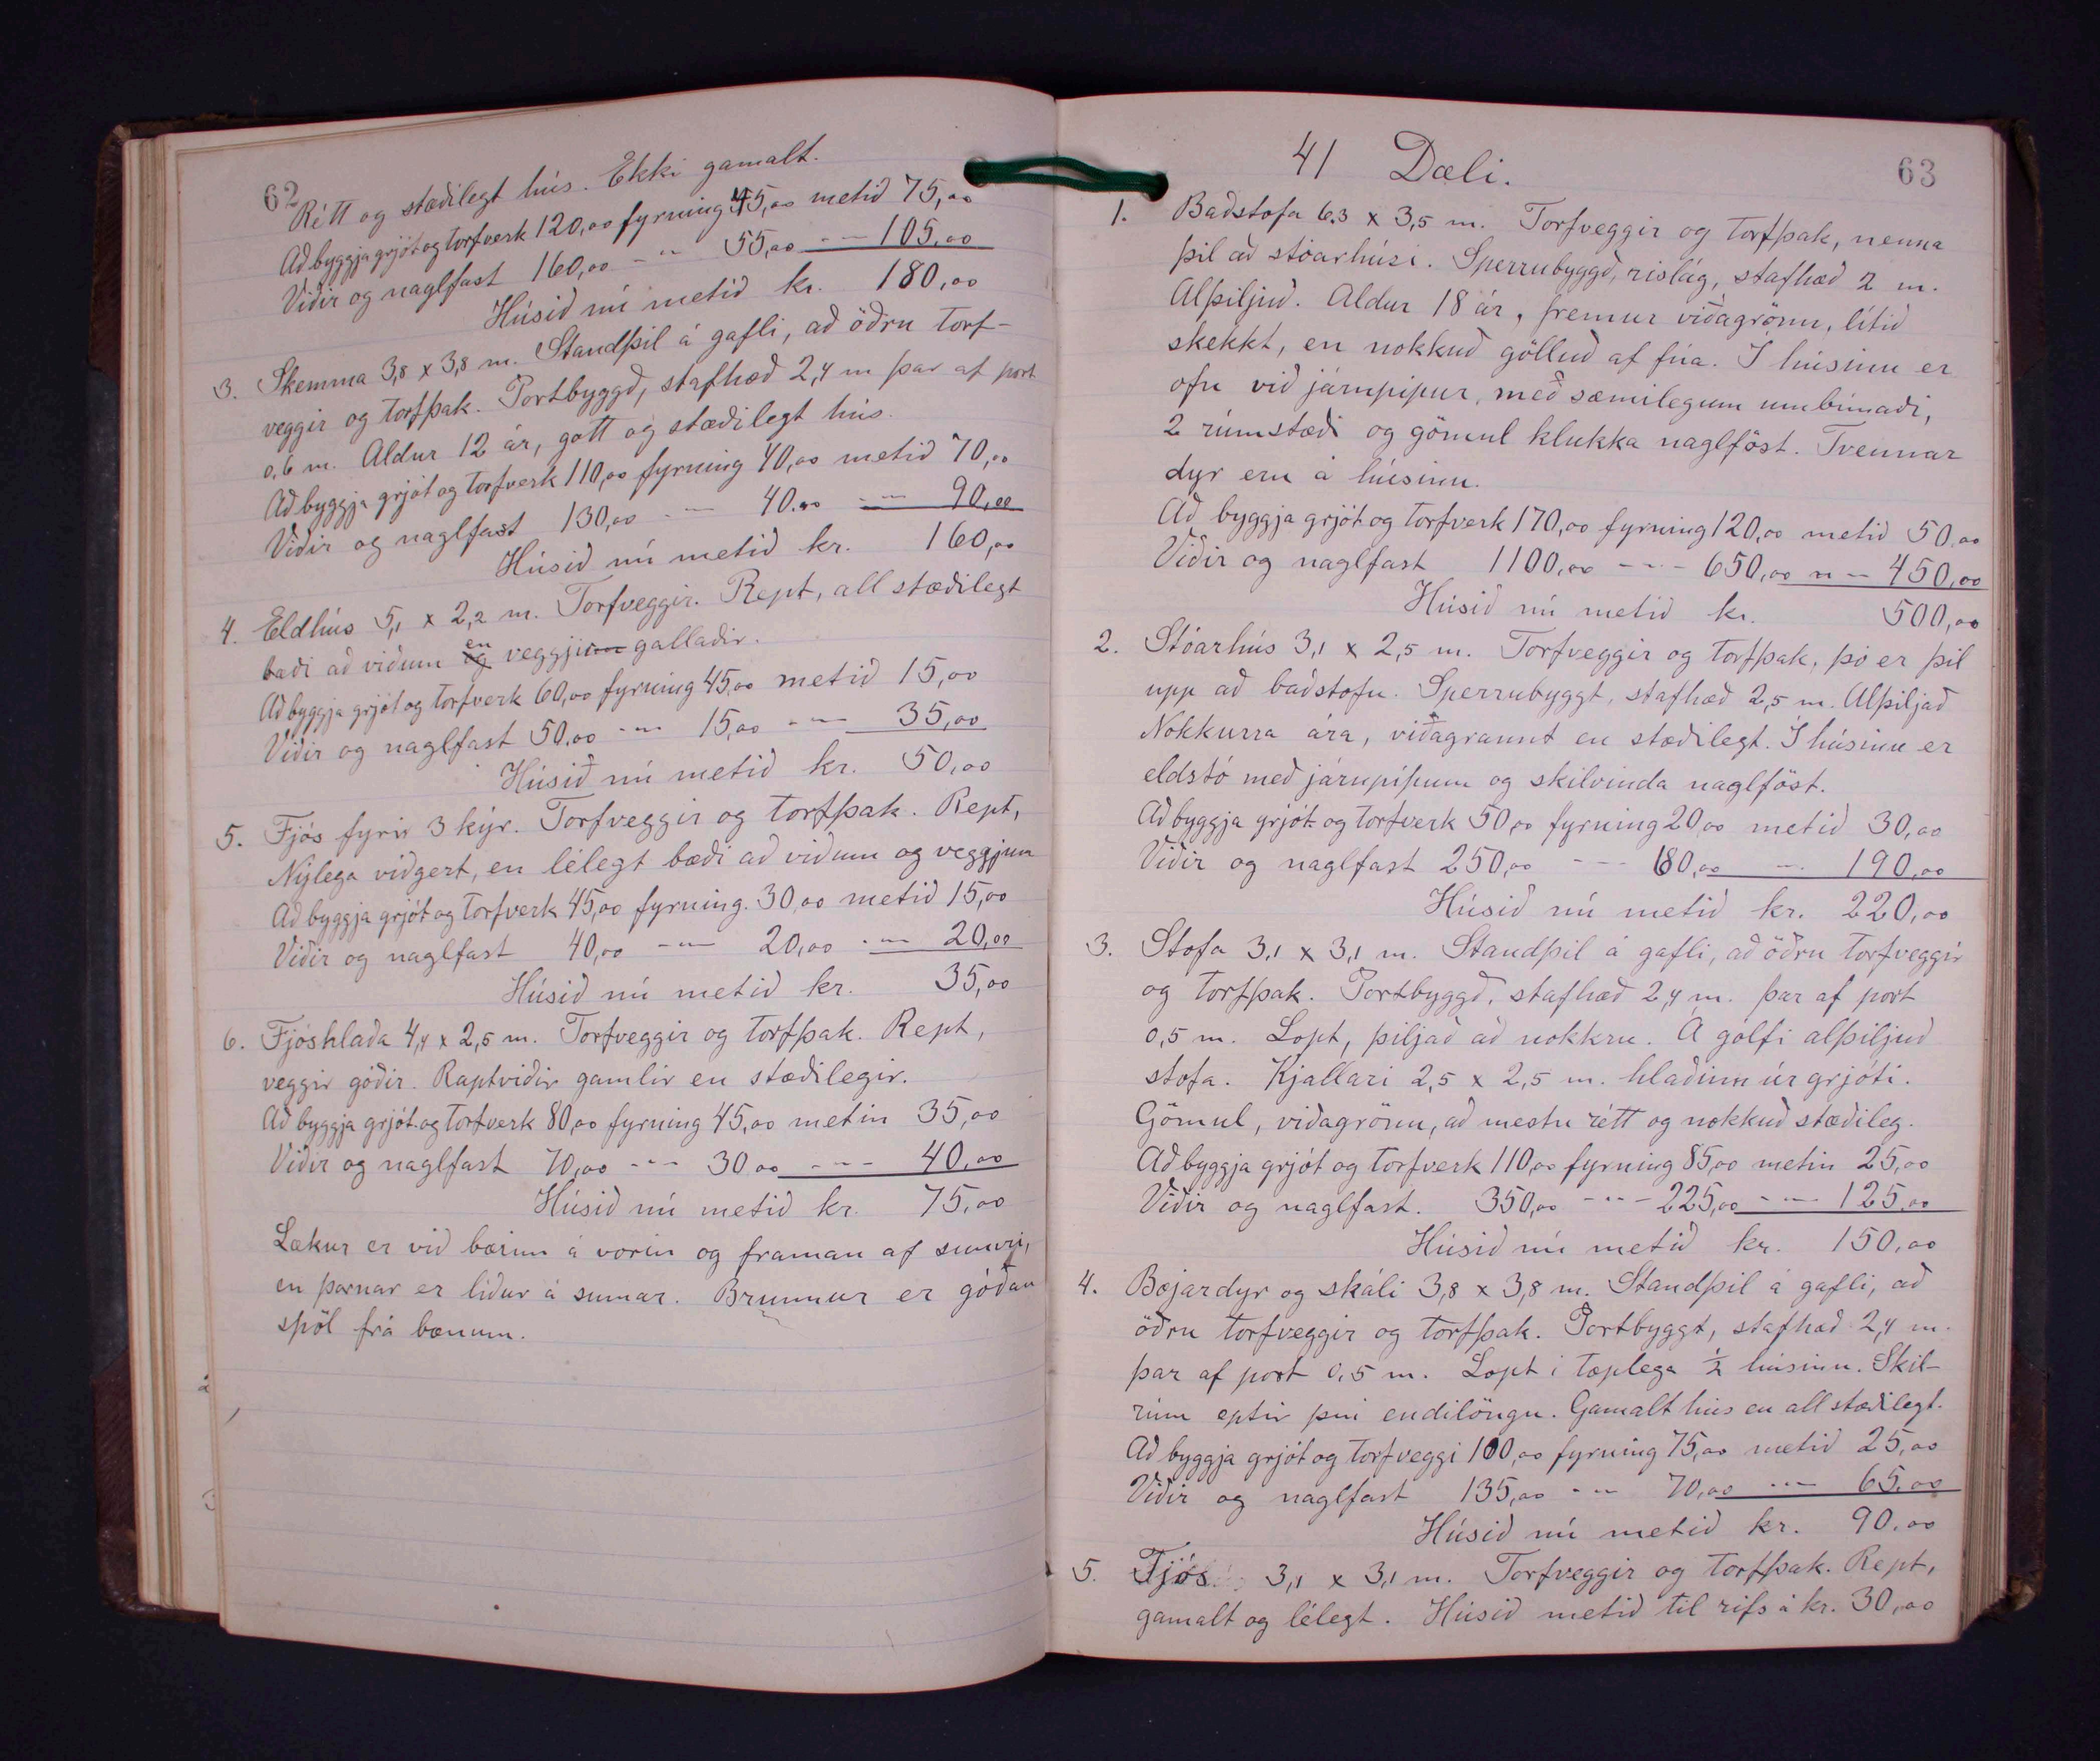 62
Rétt og stæðilegt hús. Ekki gamalt.
Að byggja grjót og torfverk 120,00 fyrning 45,00 metið 75,00
Viðir og naglfast 160,00 - " - 55,00 - " - 105,00
Húsið nú metið kr. 180,00
3. Skemma 3,8 x 3,8 m. Standþil á gafli, að öðru torf-
veggir og torfþak. Portbyggð, stafhæð 2,4 m þar af port
0,6 m. Aldur 12 ár, gott og stæðilegt hús.
Að byggja grjót og torfverk 110,00 fyrning 40,00 metið 70,00
Viðir og naglfast 130,00 - " - 40,00 - " - 90,00
Húsið nú metið kr. 160,00
4. Eldhús 5,1 x 2,2 m. Torfveggir. Rept, all stæðilegt
bæði að viðum en veggir gallaðir.
Að byggja grjót og torfverk 60,00 fyrning 45,00 metið 15,00
Viðir og naglfast 50,00 - " - 15,00 - " - 35,00
Húsið nú metið kr. 50,00
5. Fjós fyrir 3 kýr. Torfveggir og torfþak. Rept,
Nýlega viðgert, en lélegt bæði að viðum og veggjum
Að byggja grjót og torfverk 45,00 fyrning. 30,00 metið 15,00
Viðir og naglfast 40,00 - " - 20,00 - " - 20,00
Húsið nú metið kr. 35,00
6. Fjóshlaða 4,4 x 2,5 m. Torfveggir og torfþak. Rept,
veggir góðir. Raptviðir gamlir en stæðilegir.
Að byggja grjót og torfverk 80,00 fyrning 45,00 metin 35,00
Viðir og naglfast 70,00 - " - 30,00 - " - 40,00
Húsið nú metið kr. 75,00
Lækur er við bæinn á vorin og framan af sumri,
en þornar er líður á sumar. Brunnur er góðan
spöl frá bænum.
63
41 Dæli.
1. Baðstofa 6,3 x 3,5 m. Torfveggir og torfþak, nema
þil að stóarhúsi. Sperrubyggð, rislág, stafhæð 2 m.
Alþiljuð. Aldur 18 ár, fremur viðagrönn, lítið
skekkt, en nokkuð gölluð af fúa. I húsinu er
ofn við járnpipur, með sæmilegum umbúnaði,
2 rúmstæði og gömul klukka naglföst. Tvennar
dyr eru á húsinu.
Að byggja grjót og torfverk 170,00 fyrning 120,00 metið 50,00
Viðir og naglfast 1100,00 - " - 650,00 " - 450,00
Húsið nú metið kr. 500,00
2. Stóarhús 3,1 x 2,5 m. Torfveggir og torfþak, þó er þil
upp að baðstofu. Sperrubyggt, stafhæð 2,5 m. Alþiljað
Nokkurra ára, viðagrannt en stæðilegt. Í húsinu er
eldstó með járnpípum og skilvinda naglföst.
Að byggja grjót og torfverk 50,00 fyrning 20,00 metið 30,00
Viðir og naglfast 250,00 - " - 60,00 - " - 190,00
Húsið nú metið kr. 220,00
3. Stofa 3,1 x 3,1 m. Standþil á gafli, að öðru torfveggir
og torfþak. Portbyggð, stafhæð 2,4 m. þar af port
0,5 m. Lopt, þiljað að nokkru. Á gólfi alþiljuð
stofa. Kjallari 2,5 x 2,5 m. hlaðinn úr grjóti.
Gömul, viðagrönn, að mestu rétt og nokkuð stæðileg.
Að byggja grjót og torfverk 110,00 fyrning 85,00 metin 25,00
Viðir og naglfast. 350,00 - " - 225,00 - " - 125,00
Húsið nú metið kr. 150,00
4. Bæjardyr og skáli 3,8 x 3,8 m. Standþil á gafli, að
öðru torfveggir og torfþak. Portbyggt, stafhæð 2,4 m.
þar af port 0,5 m. Lopt í tæplega ½ húsinu. Skil-
rúm eptir því endilöngu. Gamalt hús en all stæðilegt.
Að byggja grjót og torfveggi 100,00 fyrning 75,00 metið 25,00
Viðir og naglfast 135,00 - " - 70,00 - " - 65,00
Húsið nú metið kr. 90,00
5. Fjós 3,1 x 3,1 m. Torfveggir og torfþak. Rept,
gamalt og lélegt. Húsið metið til rifs á kr. 30,00